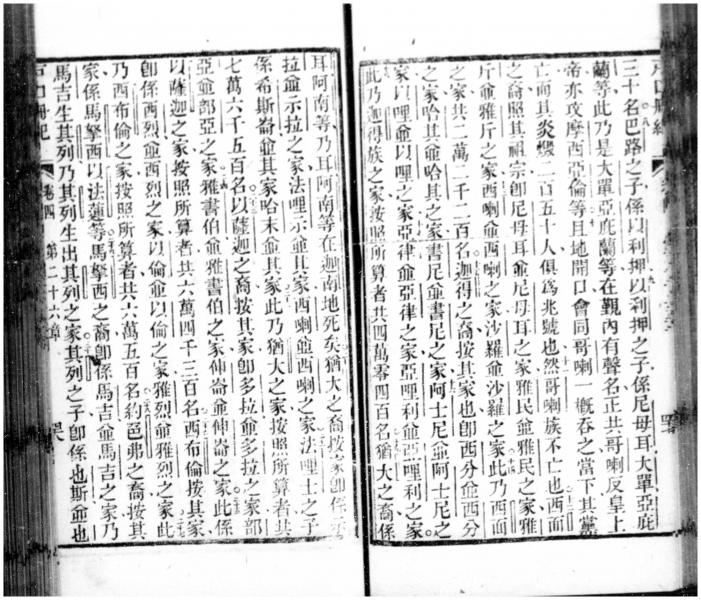 三十名巴路之子係以利押以利押之子係尼母耳大單亞庇
蘭等此乃是大單亞庇蘭等在覲內有聲名正共哥喇反皇上
帝亦攻摩西亞倫等且地開口會同哥喇一概吞之當下其黨
亡而其炎燬二百五十人俱爲兆號也然哥喇族不亡也西面
之裔照其祖宗卽尼母耳爺尼母耳之家雅民爺雅民之家雅
斤爺雅斤之家西喇爺西喇之家沙羅爺沙羅之家此乃西面
之家共二萬二千二百名迦得之裔按其家也卽西分爺西分
之家哈其爺哈其之家書尼爺書尼之家阿士尼爺阿士尼之
家以哩爺以哩之家亞律爺亞律之家亞哩利爺亞哩利之家
此乃迦得族之家按照所算者共四萬零四百名猶大之裔係
耳阿南等乃耳阿南等在迦南地死矣猶大之裔按家卽係示
拉爺示拉之家法哩示爺其家西喇爺西喇之家法哩士之子
係希斯崙爺其家哈末爺其家此乃猶大之家按照所算者共
七萬六千五百名以薩迦之裔按其家卽多拉爺多拉之家部
亞爺部亞之家雅書伯爺雅書伯之家伸崙爺伸崙之家此係
以薩迦之家按照所算者共六萬四千三百名西布倫按其家
卽係西烈爺西烈之家以倫爺以倫之家雅烈爺雅烈之家此
乃西布倫之家按照所算者共六萬五百名約邑弗之裔按其
家係馬拏西以法蓮等馬拏西之裔卽係馬吉爺馬吉之家乃
馬吉生其列乃其列生出其列之家其列之子卽係也斯爺也
戶口冊紀 卷四 第二十六章